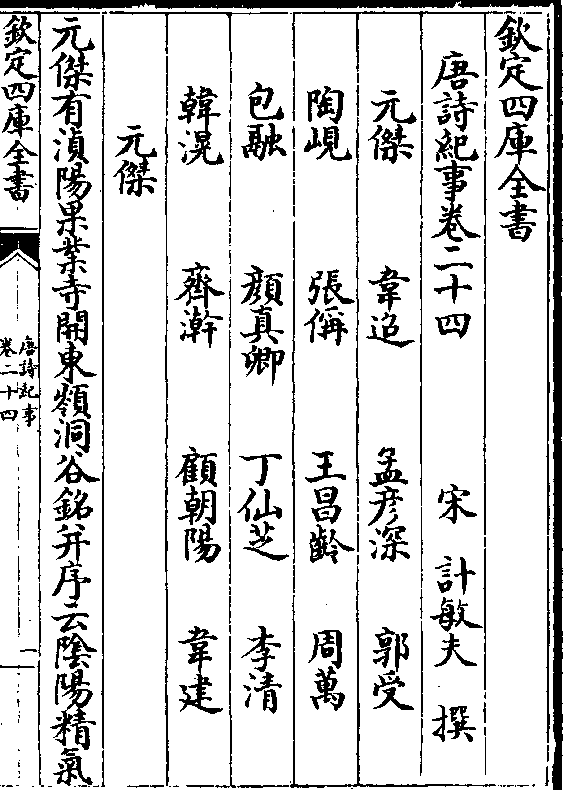 欽定四庫全書
唐詩紀事卷二十四　宋　計敏夫　撰
元傑　韋迢　孟彥深　郭受
陶峴　張偁　王昌齡　周萬
包融　顔真卿　丁仙芝　李清
韓滉　齊澣　顧朝陽　韋建
元傑
元傑有湞陽果業寺開東嶺洞谷銘并序云隂陽精氣
欽定四庫全書
唐詩紀事
卷二十四
一